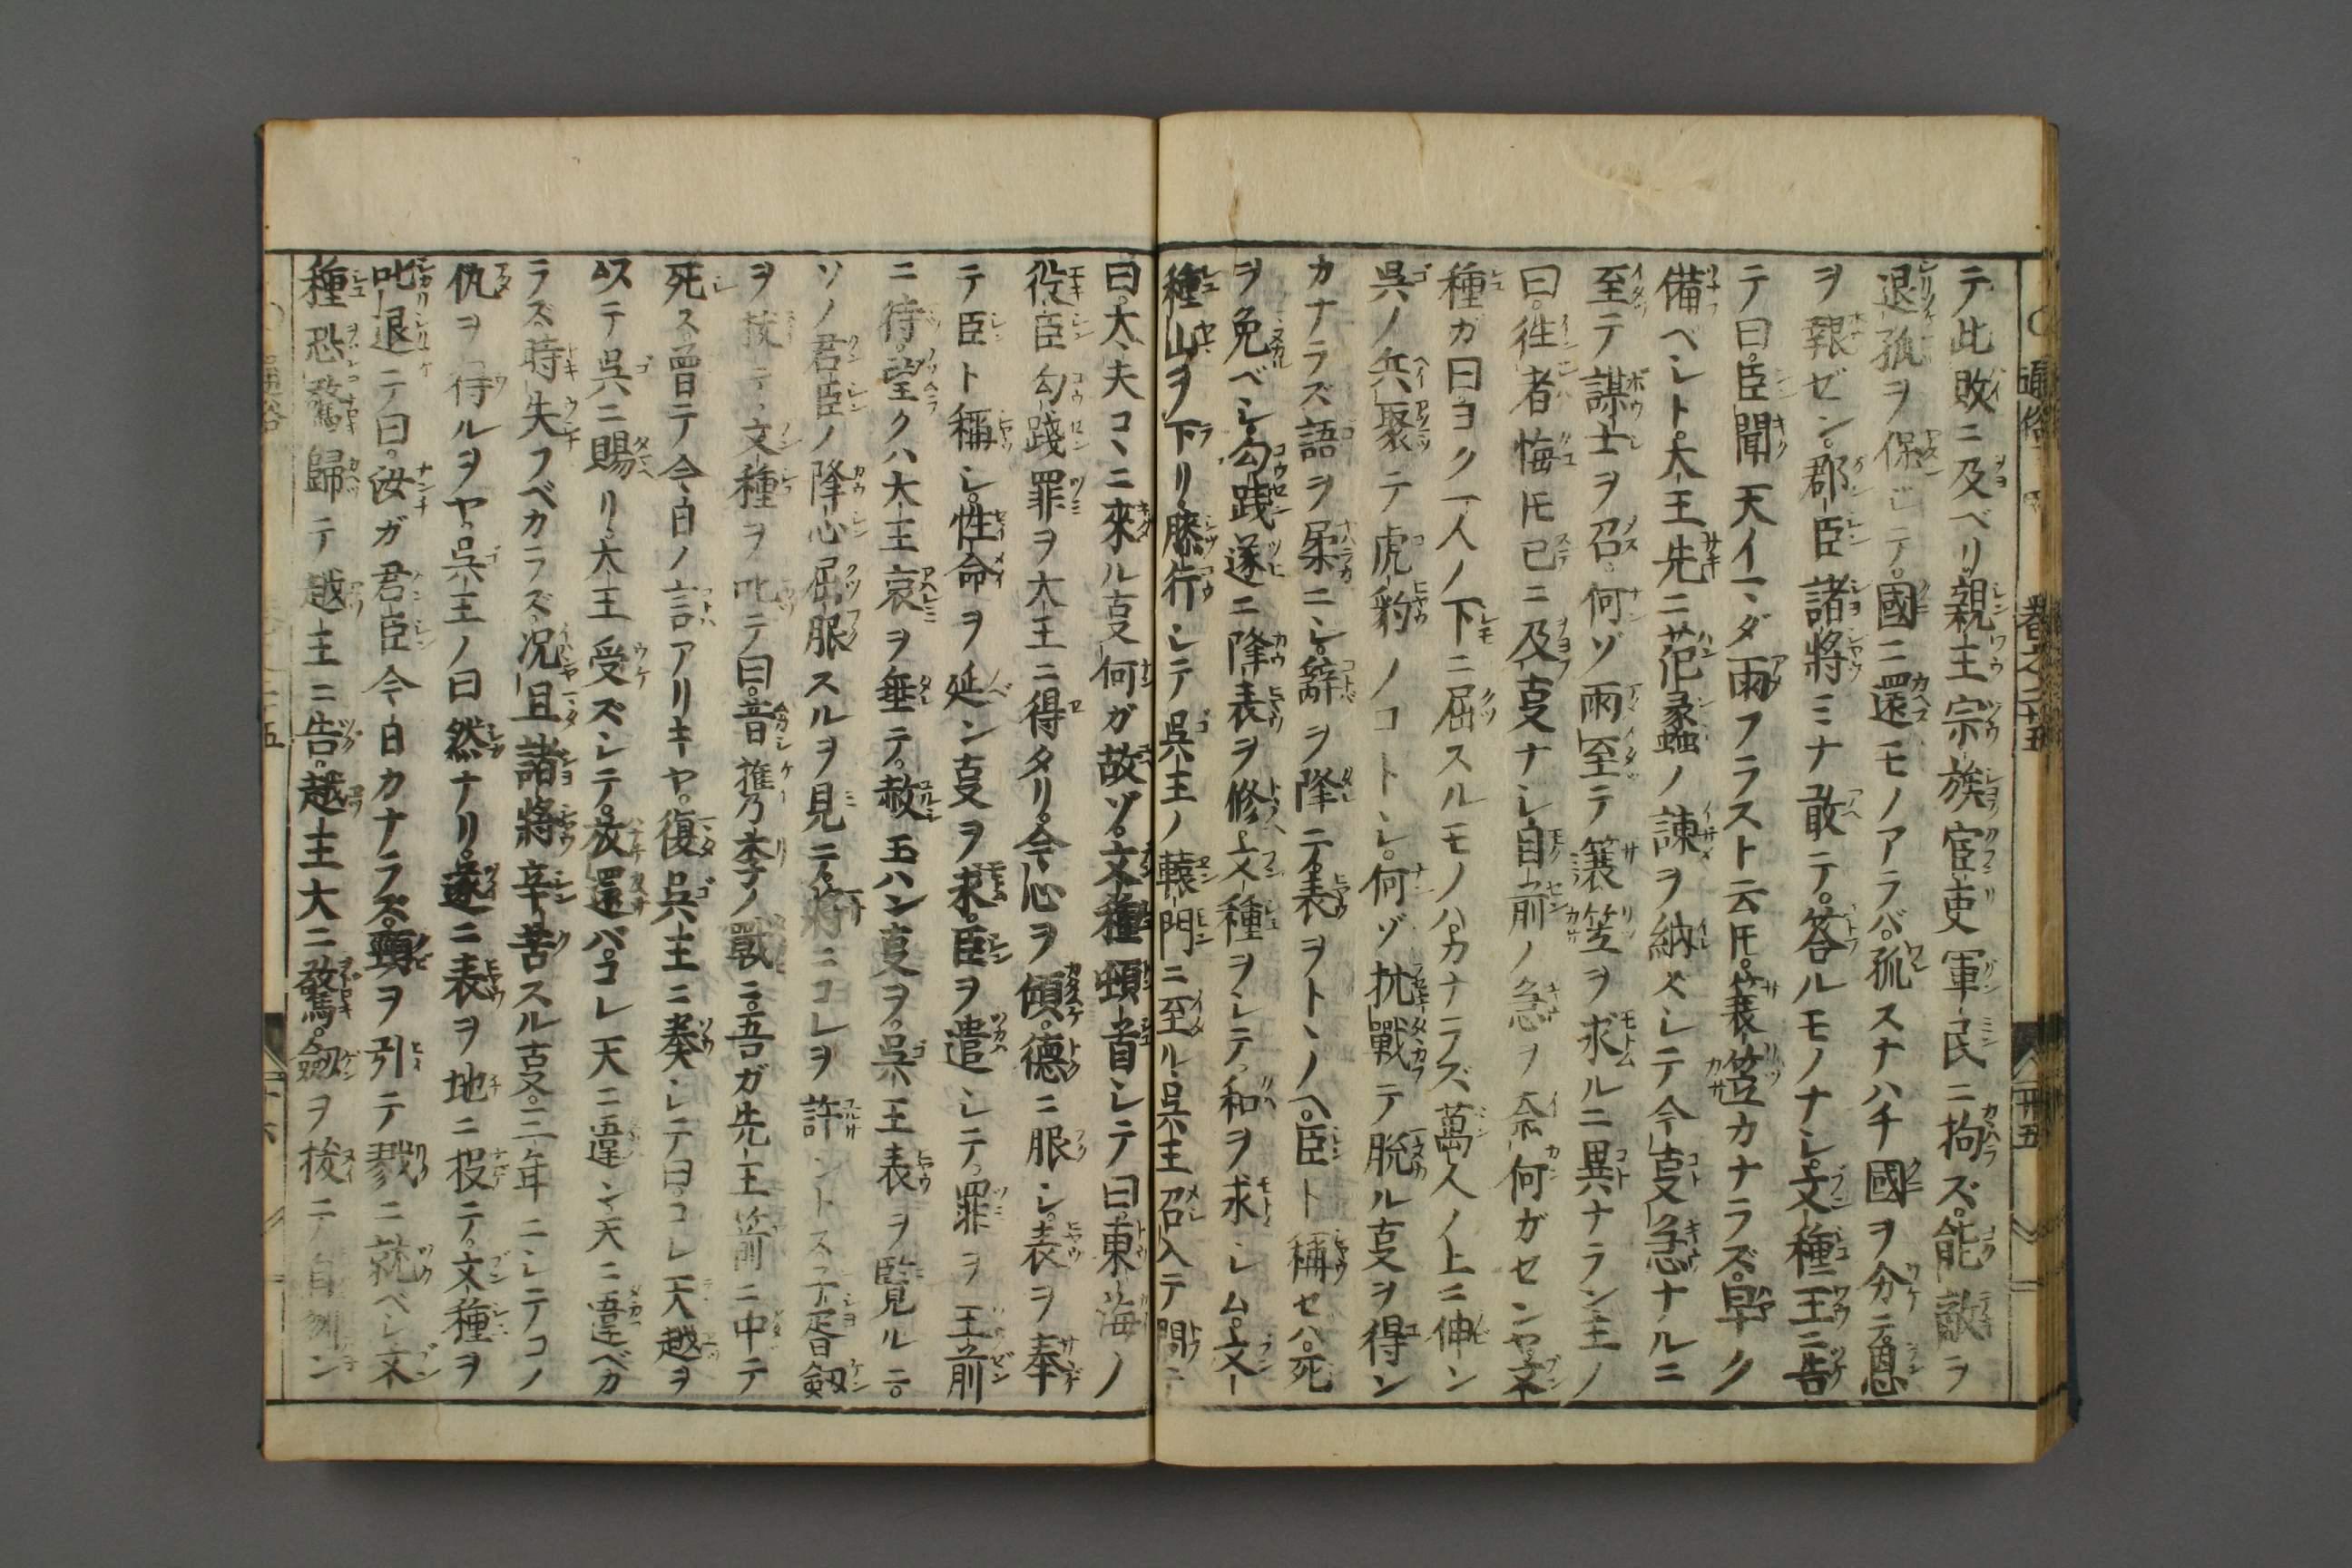 テ此敗ニ及ベリ親王宗族宦吏軍民ニ拘ズ能敵ヲ
退孤ヲ保ジテ國ニ還モノアラバ孤スナハチ國ヲ分テ恩
ヲ報ゼン郡臣諸將ミナ敢テ答ルモノナシ文種王ニ告
テ曰臣聞天イマダ雨フラスト云𪜈簑笠カナラズ早ク
備ベシト大王先ニ范蠡ノ諫ヲ納ズシテ今𫝆急ナルニ
至テ謀士ヲ召何ゾ雨至テ簑笠ヲ求ルニ異ナラン王ノ
曰徃者悔𪜈已ニ及𫝆ナシ自前ノ急ヲ奈何ガセンヤ文
種ガ曰ヨク一人ノ下ニ屈スルモノハカナラズ萬人ノ上ニ伸ン
呉ノ兵聚テ虎豹ノコトシ何ゾ抗戰テ脱ル𫝆ヲ得ン
カナラズ語ヲ柔ニシ辭ヲ降テ表ヲトヽノヘ臣ト稱セハ死
ヲ免ベシ勾踐遂ニ降表ヲ修文種ヲシテ和ヲ求シム文
種山ヲ下リ膝行シテ呉王ノ轅門ニ至ル呉王召入テ問ニ
曰大夫コヽニ來ル𫝆何ガ故ソ文種頓首シテ曰東海ノ
役臣勾踐罪ヲ大王ニ得タリ今心ヲ傾德ニ服シ表ヲ奉
テ臣ト稱シ性命ヲ延ン𫝆ヲ求臣ヲ遣シテ罪ヲ王前
ニ待望クハ大王哀ヲ垂テ赦玉ハン𫝆ヲ呉王表ヲ覧ルニ
ソノ君臣ノ降心屈服スルヲ見テ將ニコレヲ許ントス子胥劔
ヲ拔テ文種ヲ叱テ曰昔檇李ノ戰ニ吾ガ先王箭ニ中テ
死ス曾テ今日ノ言アリキヤ復呉王ニ奏シテ曰コレ天越ヲ
以テ呉ニ賜リ大王受ズシテ放還バコレ天ニ違ン天ニ違ベカ
ラズ時失フベカラズ况且諸將辛苦スル𫝆三年ニシテコノ
仇ヲ待ルヲヤ呉王ノ曰然ナリ遂ニ表ヲ地ニ投テ文種ヲ
叱退テ曰汝ガ君臣今日カナラズ頸ヲ引テ戮ニ就ベシ文
種恐驚歸テ越王ニ告越王大ニ驚劔ヲ拔テ自刎ン